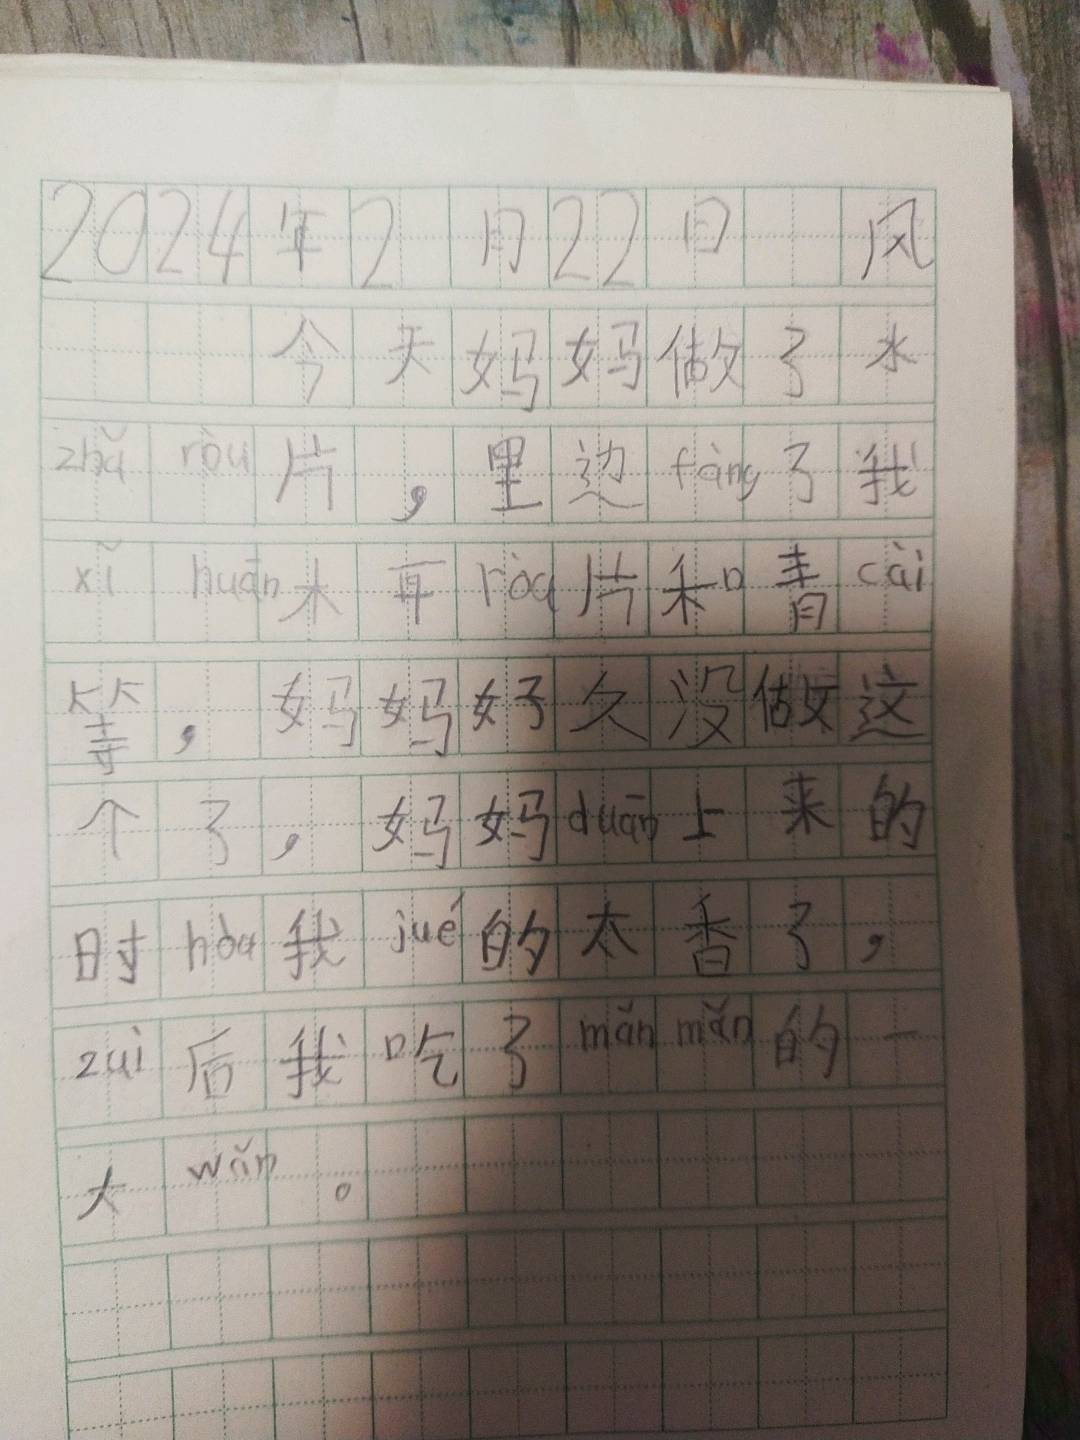 2024年2月22日 风
今天妈妈做了水
zhǎ ròu片，里边fàng了我
xǐ huān木耳ròu片和青cài
等，妈妈好久没做这
个了，妈妈duān上来的
时hòu我jué的太香了，
zuì后我吃了mǎn mǎn的一
大wǎn。